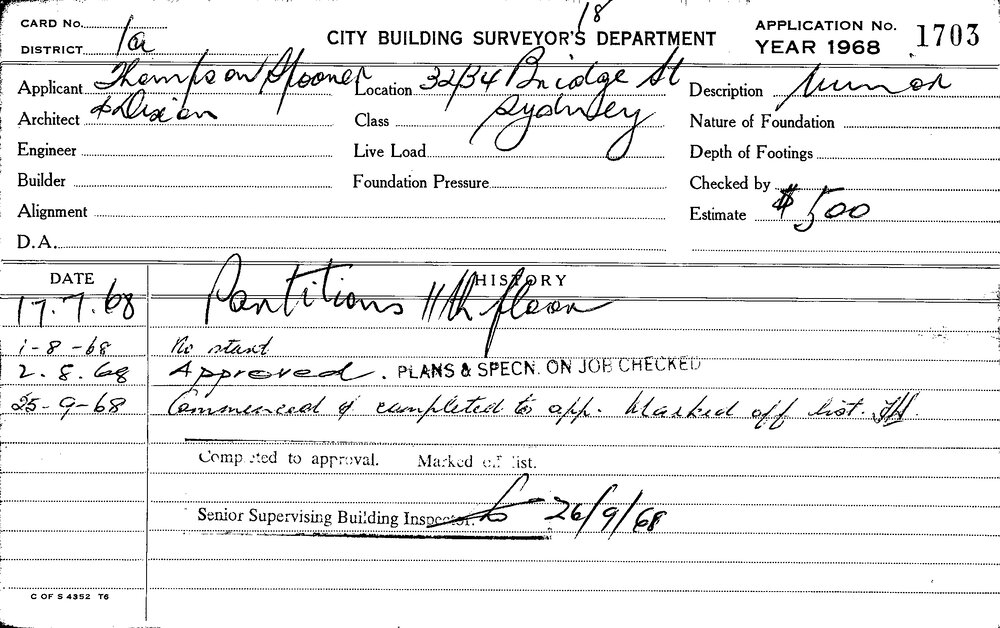 18
CARD No.
CITY BUILDING SURVEYOR'S DEPARTMENT
APPLICATION No. 1703
DISTRICT 1a
YEAR 1968
Applicant Thompson Spooner
Location 32/34 Bridge St
Description Minor
Architect & Dixon
Class Sydney
Nature of Foundation
Engineer
Live Load
Depth of Footings
Builder
Foundation Pressure
Checked by
Alignment
Estimate $500
D.A.
DATE HISTORY
17.7.68 Partitions 11th floor
1-8-68 No start
2.8.68 Approved. PLANS & SPECN. ON JOB CHECKED
25-9-68 Commenced & completed to app. Marked off list.
Completed to approval. Marked off list.
Senior Supervising Building Inspector. 26/9/68
C OF S 4352 T6